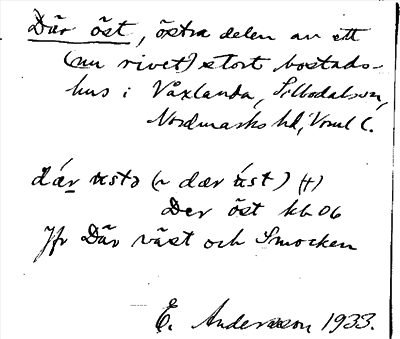 Där öst, östra delen av ett
(nu rivet) stort bostads-
hus i Våxlanda, Silbodalssn,
Nordmarks hd, Vrml l.
där ustə (~ dær úst) (†)
Der öst kb 06
Jfr Där väst och Smocken
E. Andersson 1933.